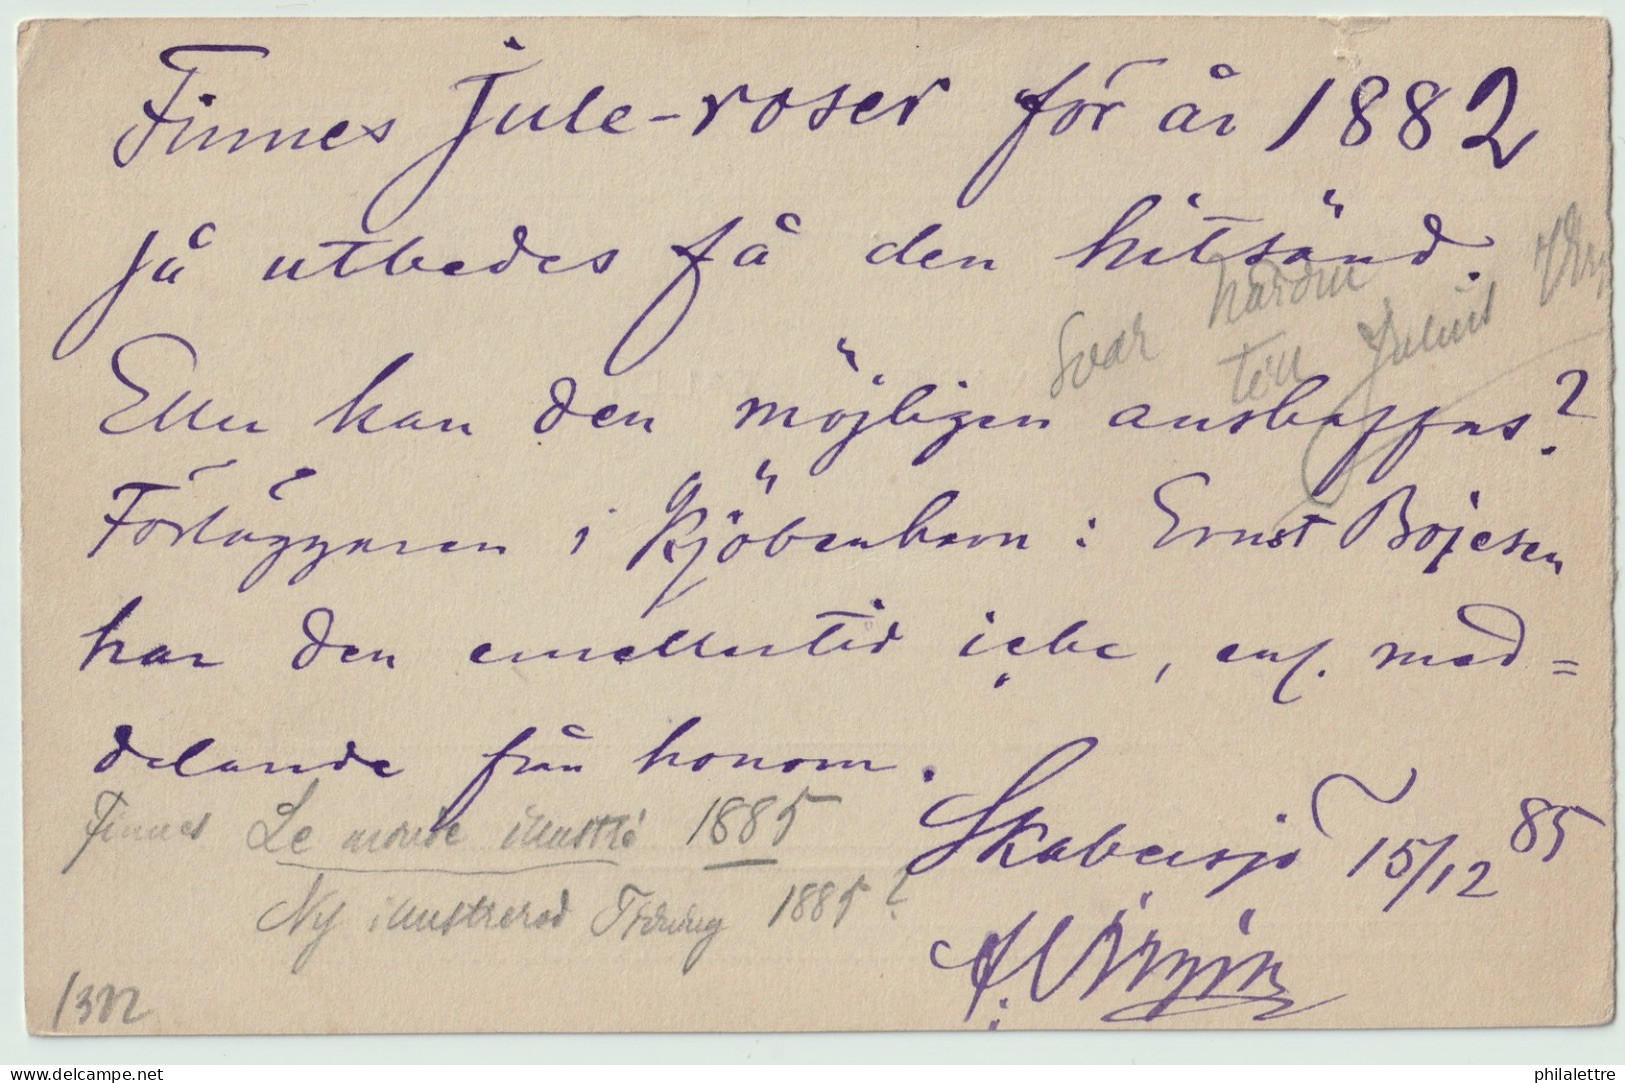 Finnes Jule-roser för år 1882
så utbedes få den hitsänd.
Svar
till Julius
Eller kan den möjligen anskaffas?
Förläggaren i Kjöbenhavn: Ernst Bojesen
har den emellertid icke, enl. med=
delande från honom.
Finnes Le monde illustré 1885
Ny illustrerad Tidning 1885?
Skabersjö 15/12 85
A. Virgin
www.delcampe.net
philalettre